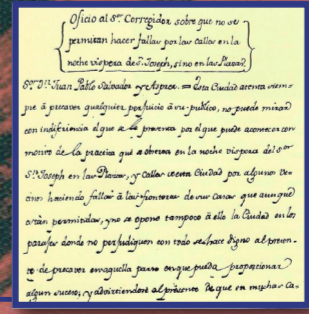 Oficio al Sr. Corregidor sobre que no se
permitan hacer fallas por las Calles en la
noche víspera de S. Joseph, sino en las Plazas.
Sr. Dn. Juan Pablo Salvador y Aspece. = Esta Ciudad atenta siem-
pre á precaver qualquier perjuicio á su publico, no puede mirar
con indiferencia el que se le previene por el que puede acontecer con
motivo de la practica que se observa en la noche víspera del Sor
Sn. Joseph en las Plazas, y Calles de esta Ciudad por algunos ve-
cinos haciendo fallas á las fronteras de sus Casas que aunque
están permitidas, y no se opone tampoco á ello la Ciudad en los
parajes donde no perjudiquen con todo se hace digno al presen-
te de precaver en aquella parte en que pueda proporcionar
algun suceso; y advirtiendose al presente de que en muchas Ca-